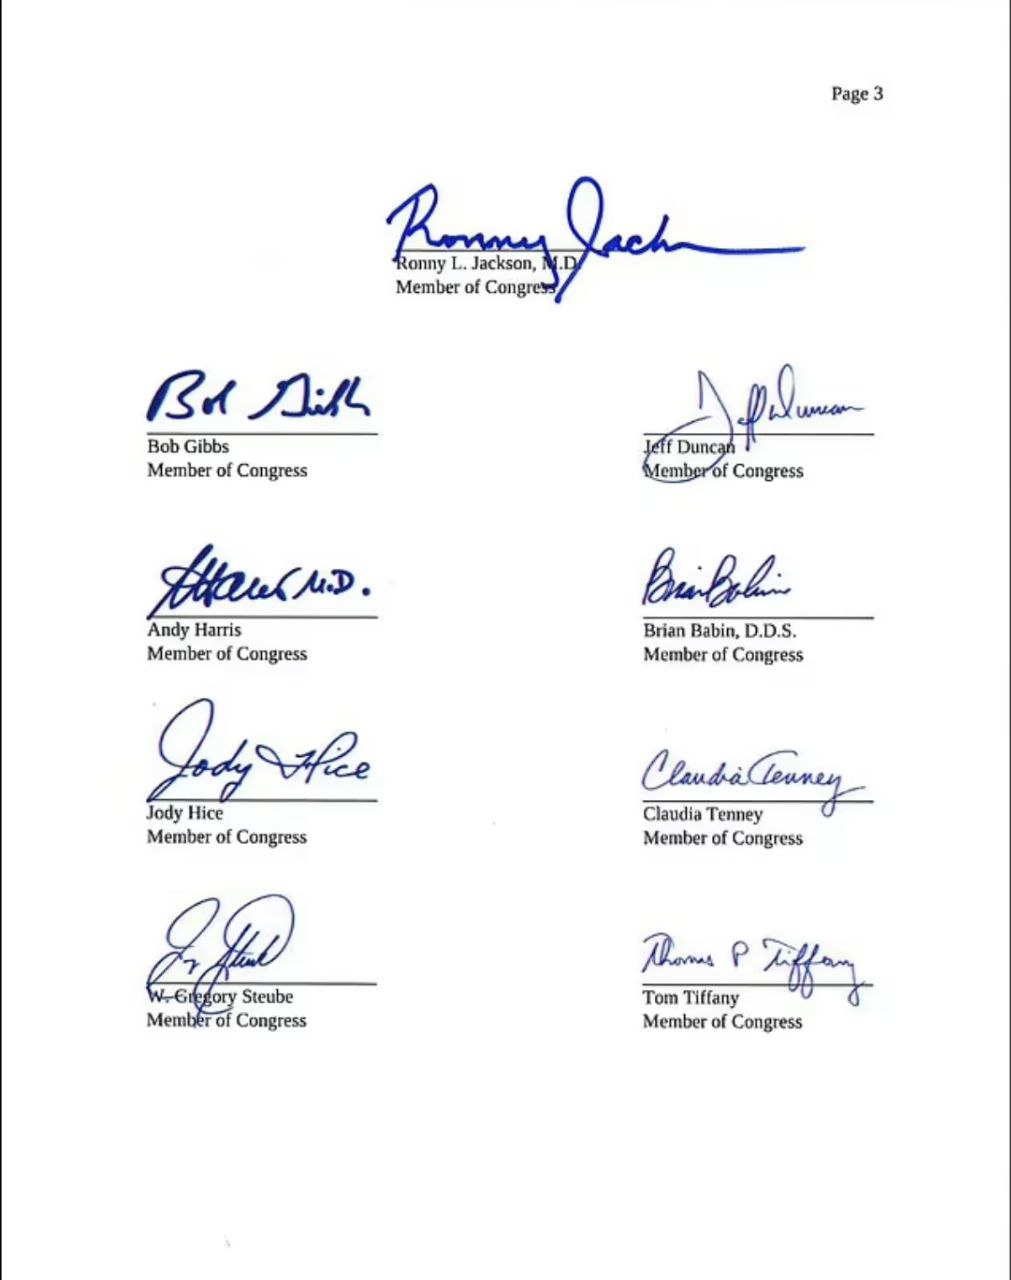 Page 3
Ronny Jackson
Ronny L. Jackson, M.D.
Member of Congress
Bob Gibbs
Jeff Duncan
Bob Gibbs
Jeff Duncan
Member of Congress
Member of Congress
Harris M.D.
Brian Babin
Andy Harris
Brian Babin, D.D.S.
Member of Congress
Member of Congress
Jody Hice
Claudia Tenney
Jody Hice
Claudia Tenney
Member of Congress
Member of Congress
Thomas P Tiffany
W. Gregory Steube
Tom Tiffany
Member of Congress
Member of Congress